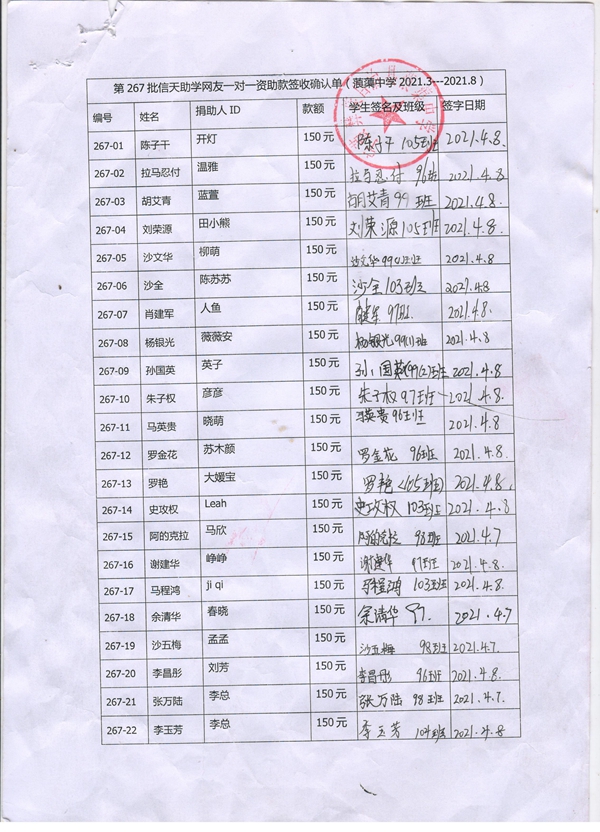 第 267 批信天助学网友一对一资助款签收确认单（蒗蕖中学 2021.3---2021.8）
编号 姓名 捐助人 ID 款额 学生签名及班级 签字日期
267-01 陈子干 开灯 150 元 陈子干 105班 2021.4.8.
267-02 拉马忍付 温雅 150 元 拉马忍付 96班 2021.4.8
267-03 胡艾青 蓝萱 150 元 胡艾青 99班 2021.4.8.
267-04 刘荣源 田小熊 150 元 刘荣源 105班 2021.4.8.
267-05 沙文华 柳萌 150 元 沙文华 99(2)班 2021.4.8
267-06 沙全 陈苏苏 150 元 沙全 103班 2021.4.8
267-07 肖建军 人鱼 150 元 97班. 2021.4.8.
267-08 杨银光 薇薇安 150 元 杨银光 99(1)班 2021.4.8
267-09 孙国英 英子 150 元 孙国英(99(2)班 2021.4.8
267-10 朱子权 彦彦 150 元 朱子权 97班 2021.4.8
267-11 马英贵 晓萌 150 元 马英贵 96班 2021.4.8
267-12 罗金花 苏木颜 150 元 罗金花 96班 2021.4.8.
267-13 罗艳 大媛宝 150 元 罗艳 <105班> 2021.4.8.
267-14 史攻权 Leah 150 元 史攻权 103班 2021.4.8
267-15 阿的克拉 马欣 150 元 阿的克拉 98班 2021.4.7
267-16 谢建华 峥峥 150 元 谢建华 97班 2021.4.8.
267-17 马程鸿 ji qi 150 元 马程鸿 103班 2021.4.8.
267-18 余清华 春晓 150 元 余清华 97. 2021.4.7
267-19 沙五梅 孟孟 150 元 沙五梅 98班 2021.4.7.
267-20 李昌彤 刘芳 150 元 李昌彤 96班 2021.4.8.
267-21 张万陆 李总 150 元 张万陆 98班 2021.4.7.
267-22 李玉芳 李总 150 元 李玉芳 104班 2021.4.8